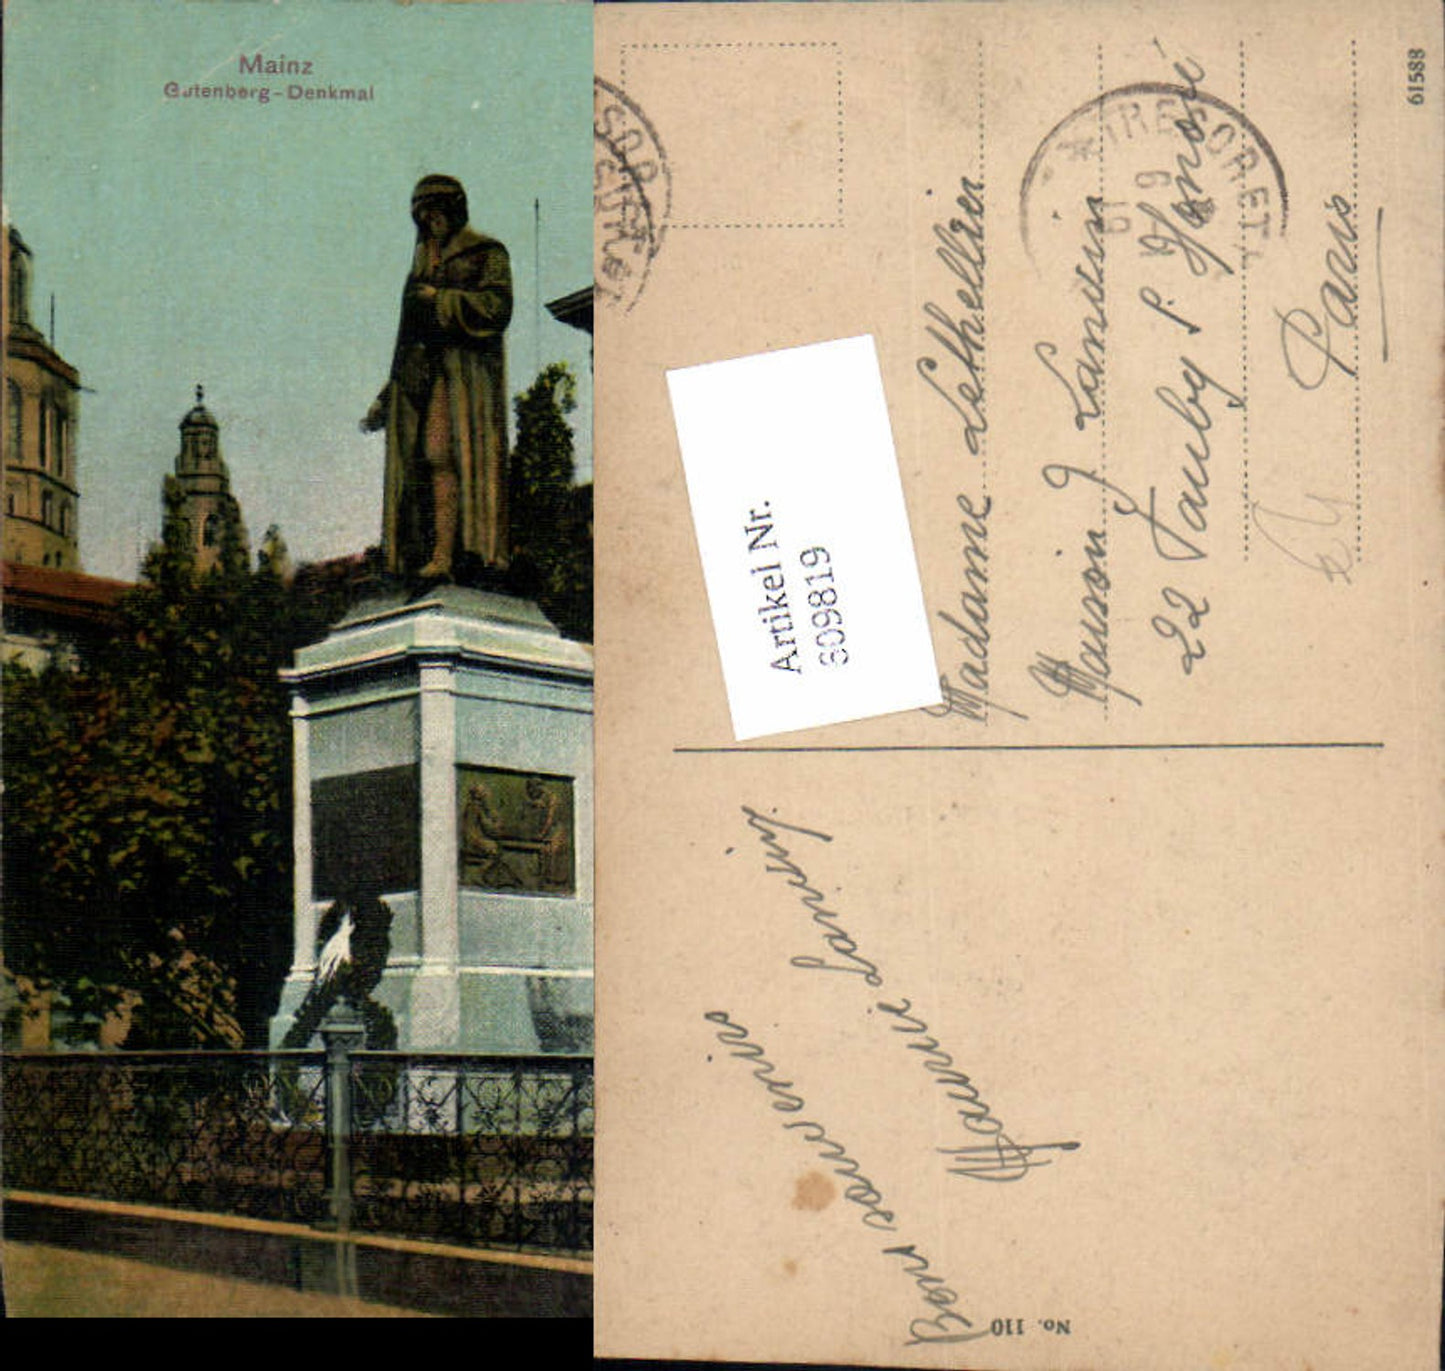 Mainz
Gutenberg-Denkmal
Artikel Nr.
609819
Madame Lethellier
Maison J Lanvin
22 Faubg S. Honoré
Paris
61588
Bons souvenirs
Marie Lanvin
No. 110